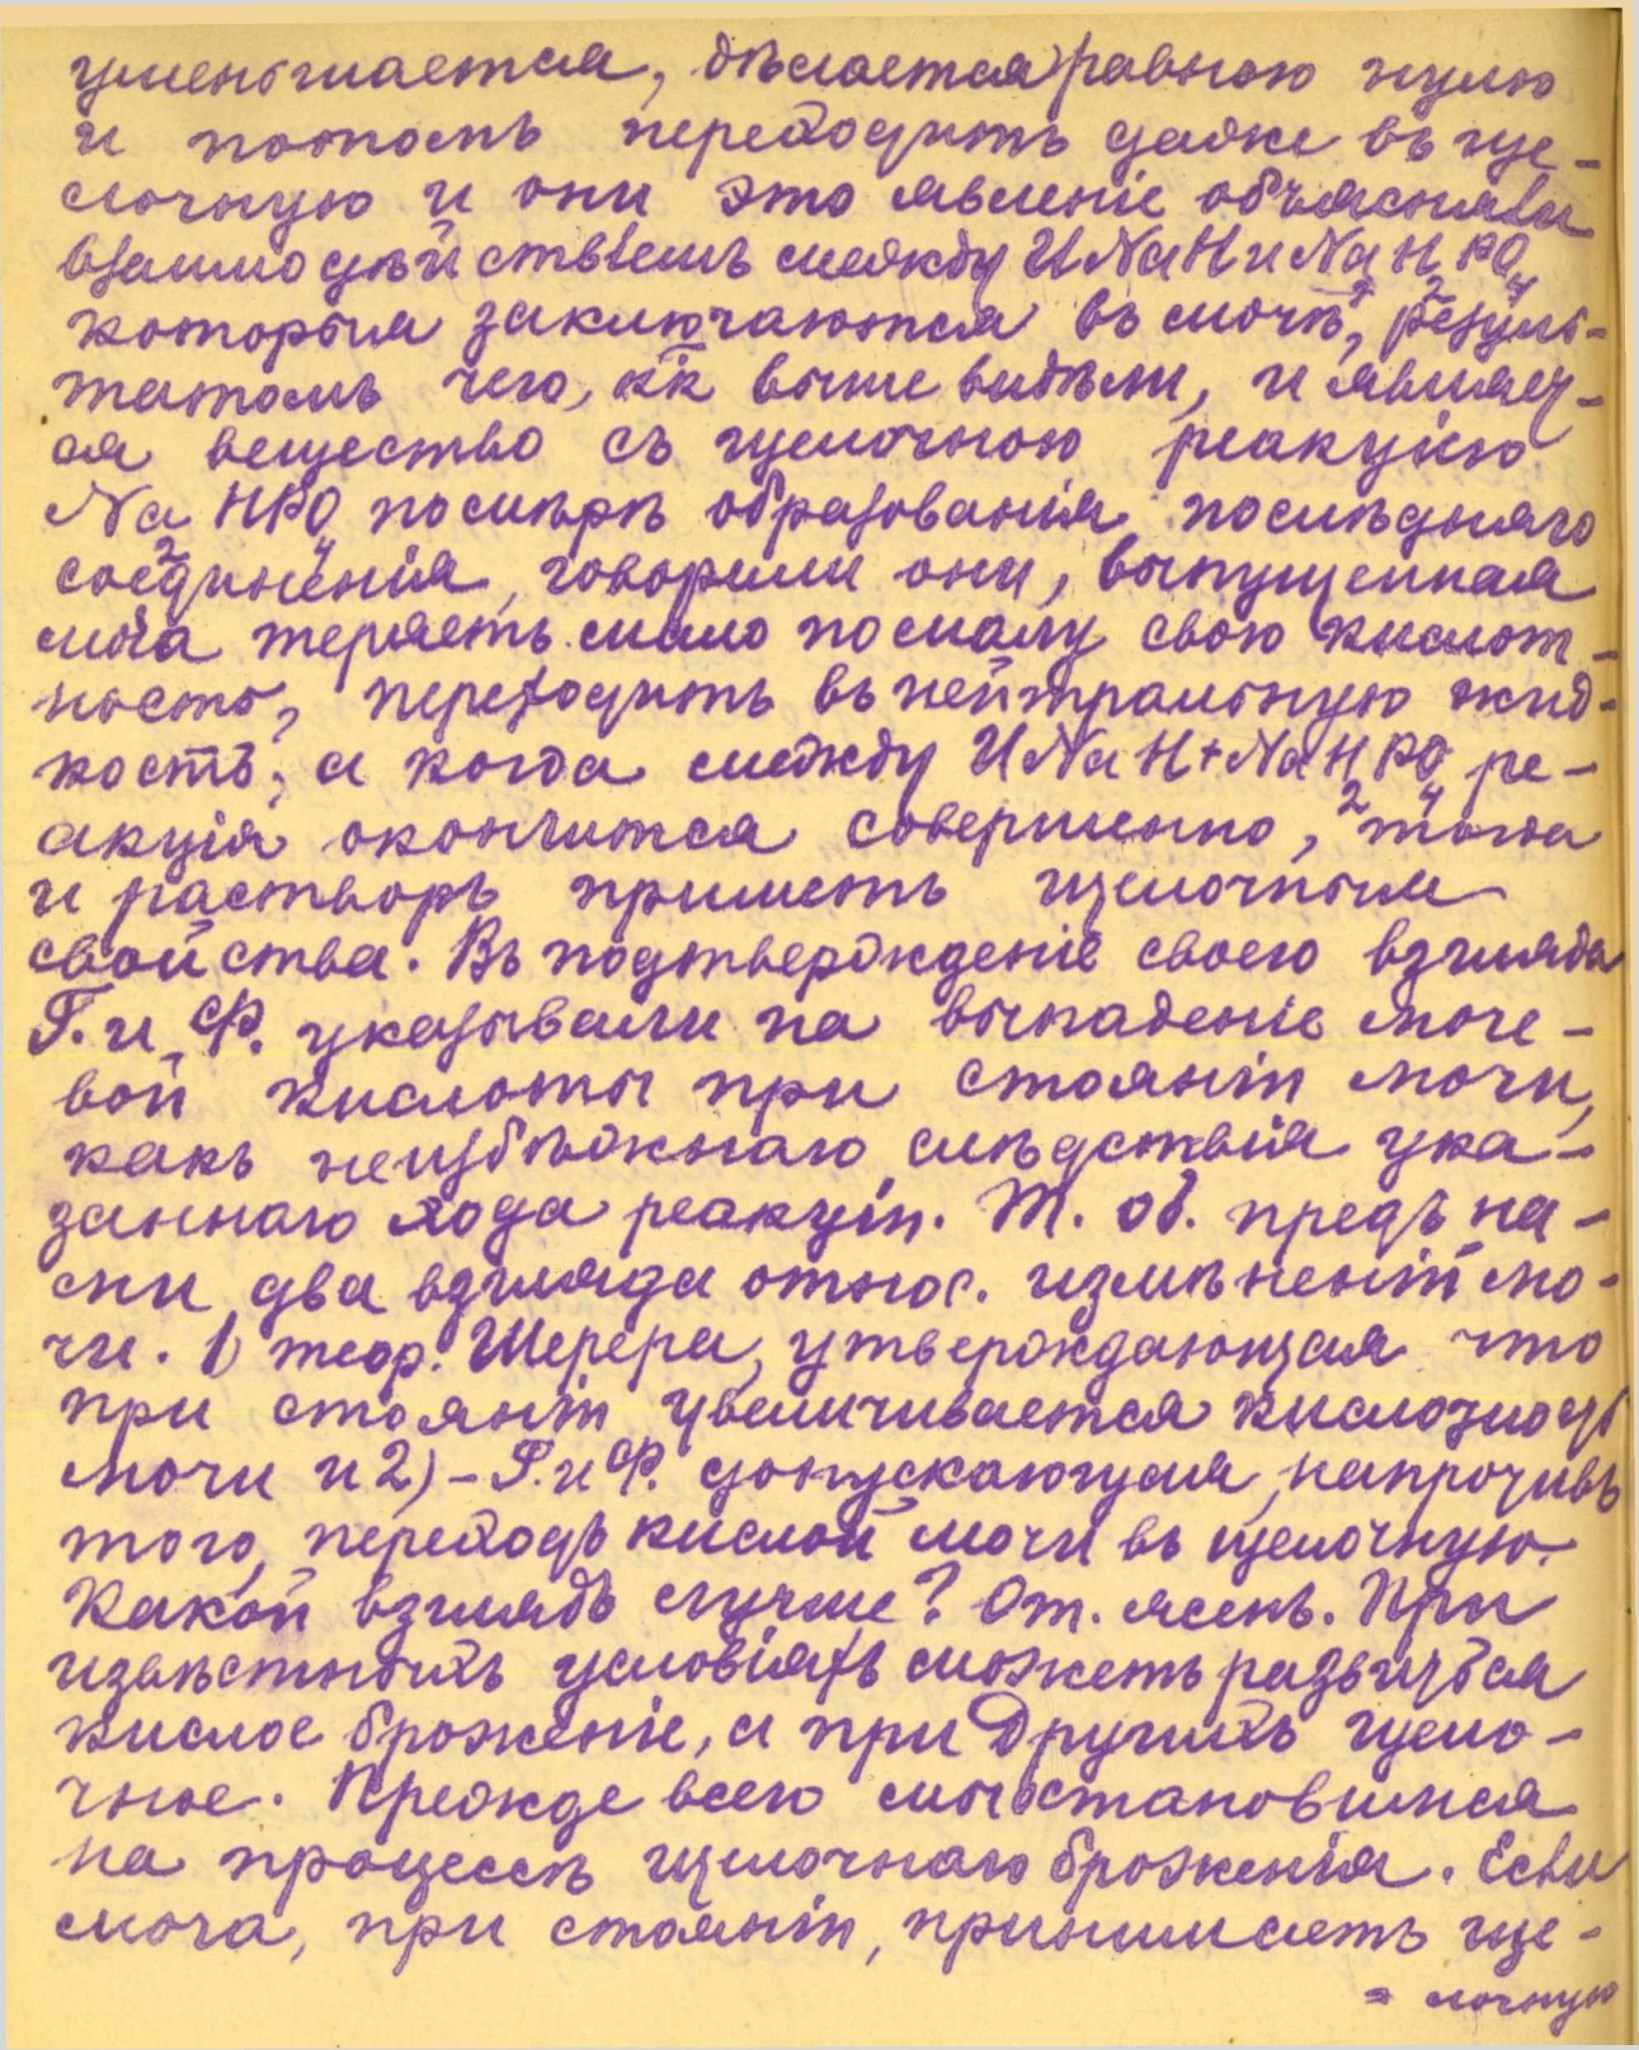 уменьшается, дѣлается равною нулю
и потомъ переходитъ даже въ ще-
лочную и они это явленіе объясняли
взаимодѣйствіемъ между UNaH и NaH2PO4,
которыя заключаются въ мочѣ, резуль-
татомъ чего, кк выше видѣли, и являет-
ся вещество съ щелочною реакціею
Na2HPO4 по мѣрѣ образованія послѣдняго
соединенія, говорили они, выпущенная
моча теряетъ мало по малу свою кислот-
ность, переходитъ въ нейтральную жид-
кость, а когда между UNaH+NaH2PO4 ре-
акція окончится совершенно, тогда
и растворъ приметъ щелочныя
свойства. Въ подтвержденіе своего взгляда
Г. и Ф. указывали на выпаденіе моче-
вой кислоты при стояніи мочи,
какъ неизбѣжнаго слѣдствія ука-
заннаго хода реакціи. Т. об. предъ на-
ми два взгляда относ. измѣненій мо-
чи. 1) теор. Шерера, утверждающая что
при стояніи увеличивается кислотность
мочи и 2) - Г. и Ф. допускающая, напротивъ
того, переходъ кислой мочи въ щелочную.
Какой взглядъ лучше? От. ясенъ. При
извѣстныхъ условіяхъ можетъ развиться
кислое броженіе, а при другихъ щело-
чное. Прежде всего мы остановимся
на процессѣ щелочнаго броженія. Если
моча, при стояніи, принимаетъ ще-
= лочную